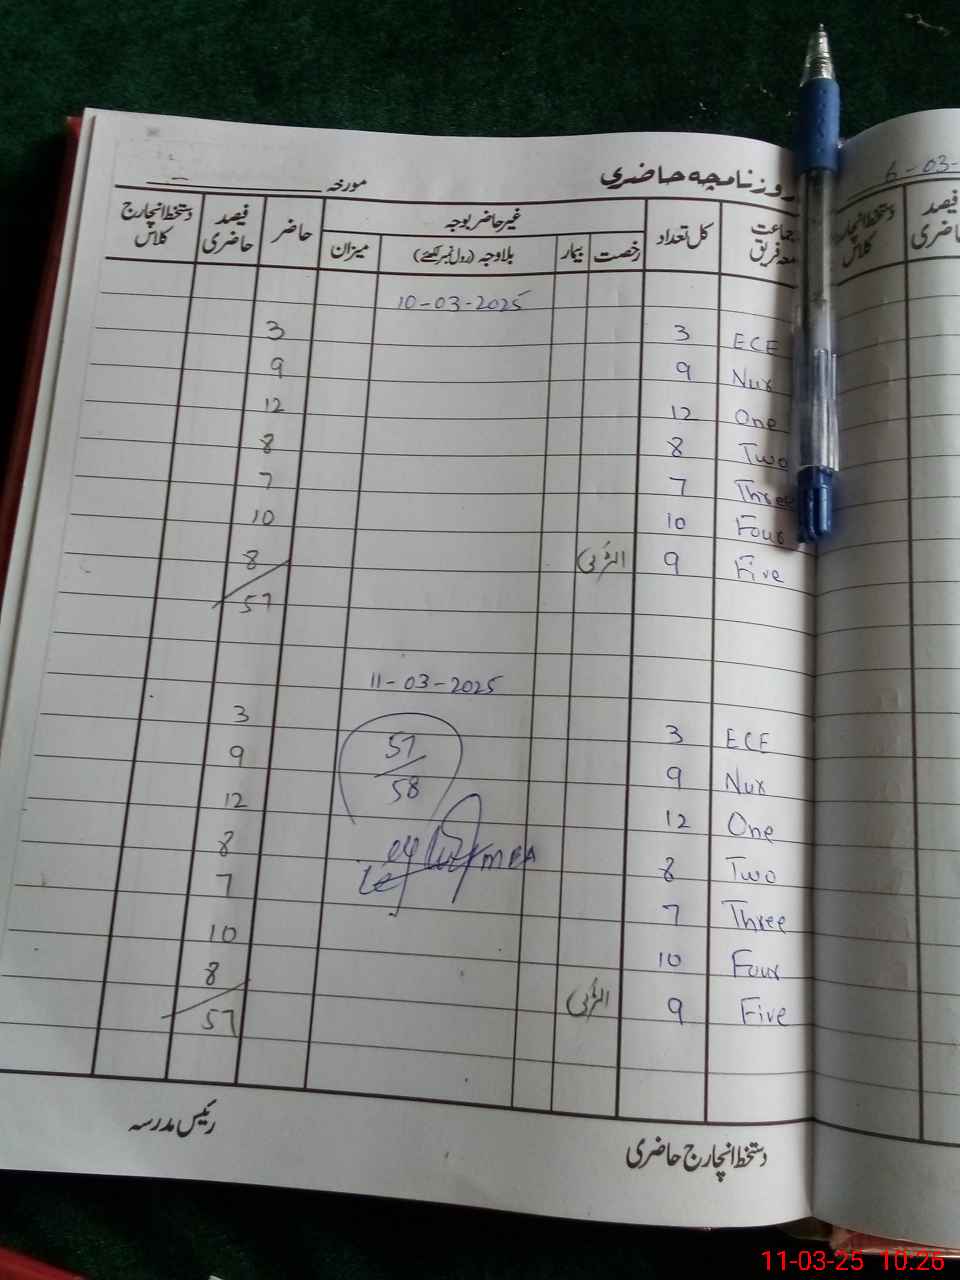 روزنامچہ حاضری
مورخہ
جماعت معہ فریق کل تعداد غیر حاضر بوجہ حاضر فیصد حاضری دستخط انچارج کلاس
رخصت بیمار بلاوجہ (رول نمبر لکھئے) میزان
10-03-2025
ECE 3 3
Nur 9 9
One 12 12
Two 8 8
Three 7 7
Four 10 10
Five 9 8
57
11-03-2025
ECE 3 3
Nur 9 57/58 9
One 12 12
Two 8 MEA 8
Three 7 7
Four 10 10
Five 9 8
57
دستخط انچارج حاضری رئیس مدرسہ
6-03-
فیصد حاضری
دستخط انچارج کلاس
11-03-25 10:26